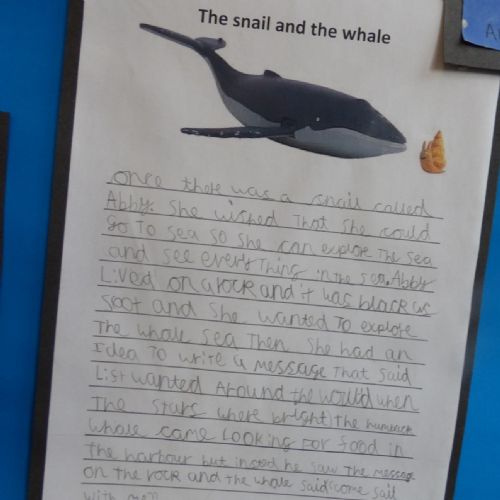 The snail and the whale
once there was a snail called
Abby. She wished That She could
go To Sea so She can explore The Sea
and see everyThing in the sea. Abby
Lived on a rock and it was black as
Soot and She wanted To explore
The whole sea Then She had an
Idea To write a message That said
List wanted Around the would when
The Stars where bright the humback
whale came Looking For food in
the harbour but insted he saw The message
on the rock and the whale said "come sail
with me"